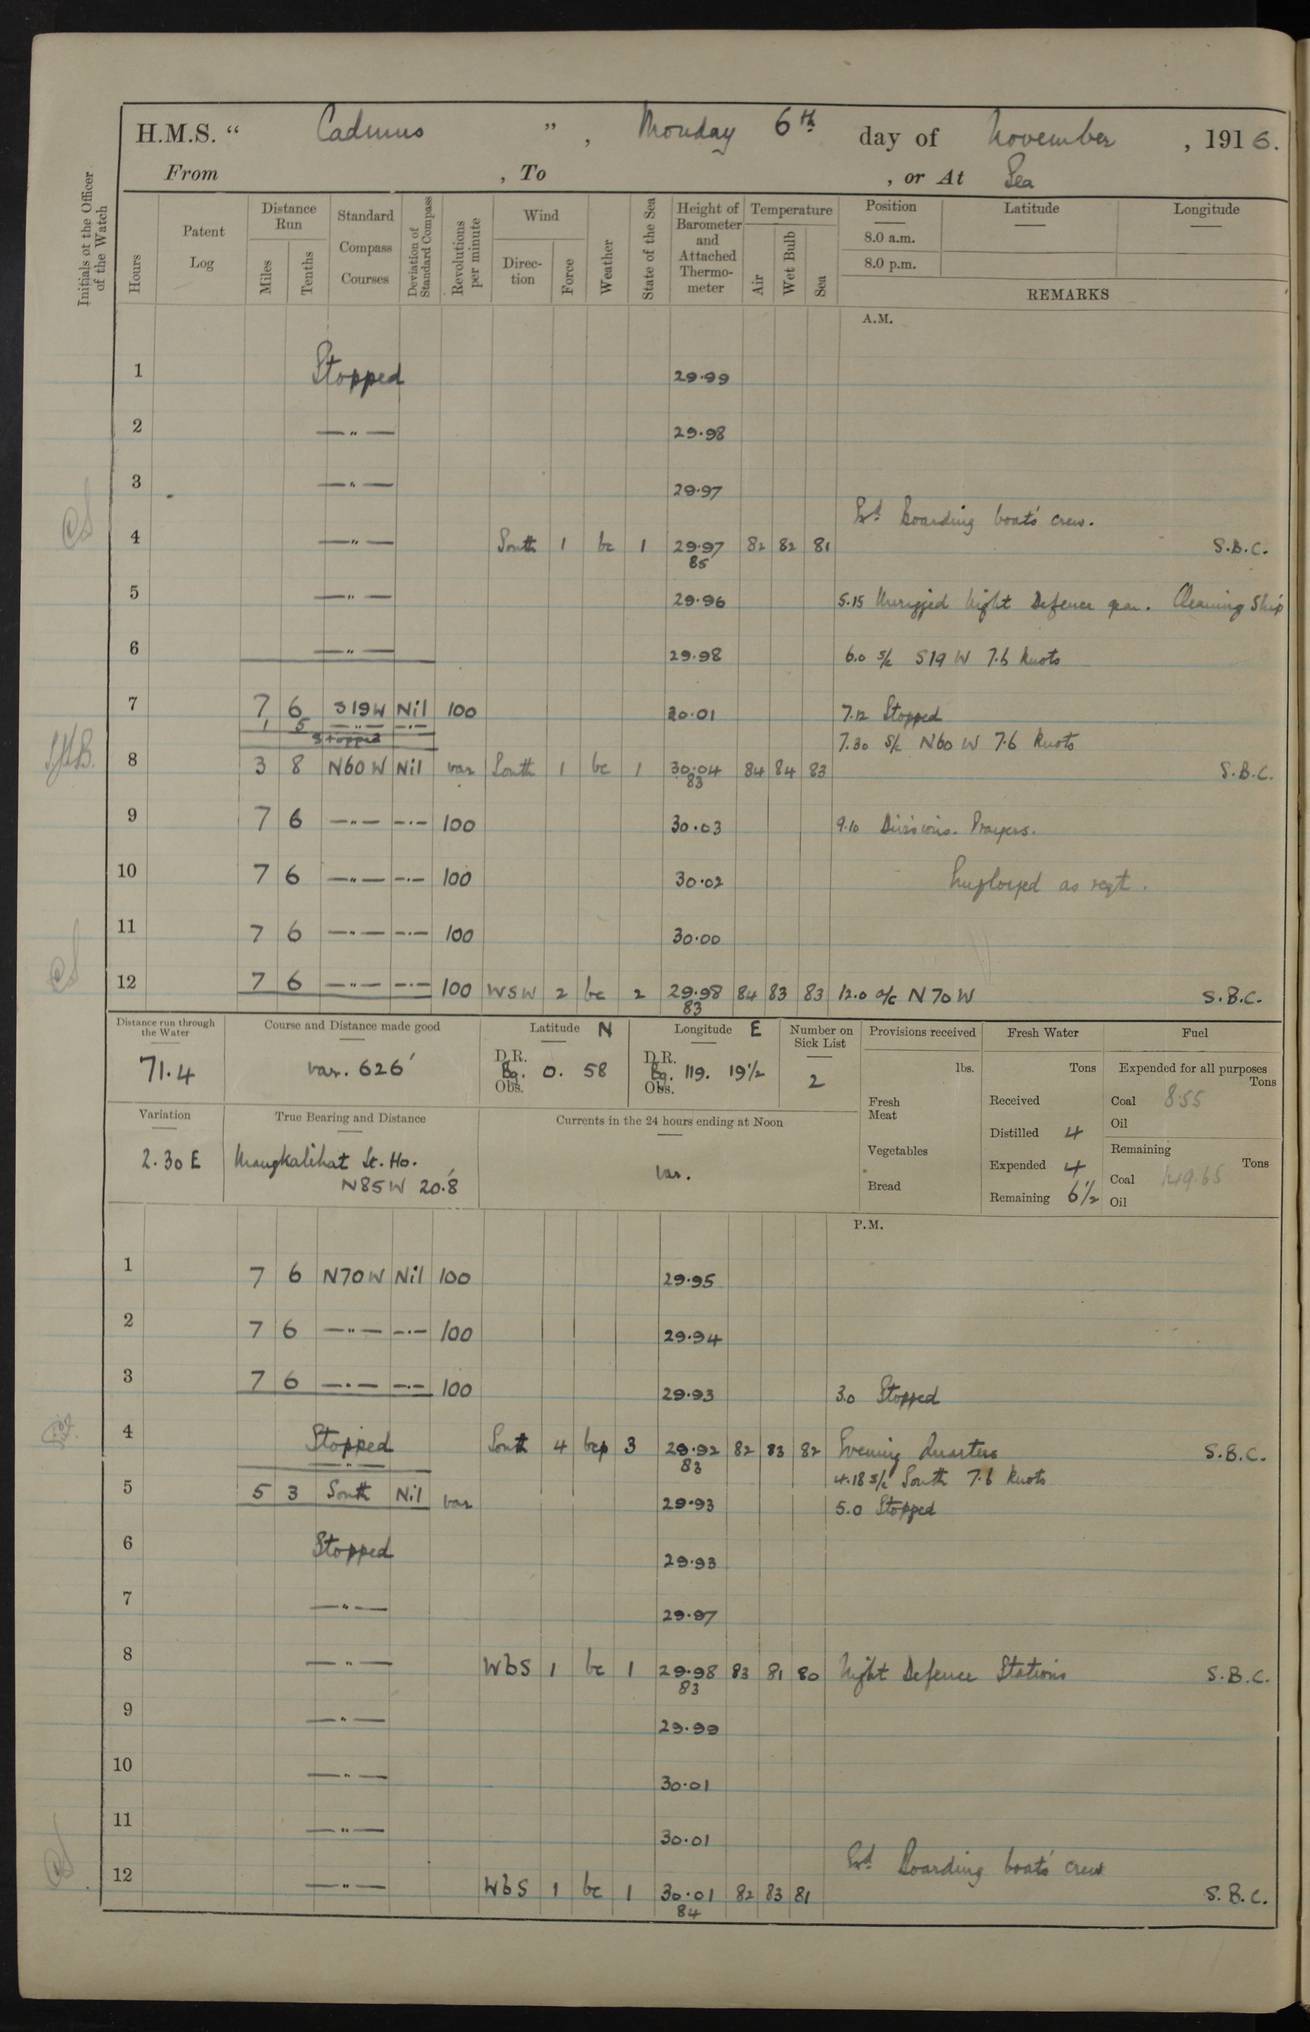 H.M.S. “ Cadmus ” , Monday 6th day of November , 1916.
From , To , or At Sea
Initials of the Officer of the Watch
Hours
Patent Log
Distance Run
Miles
Tenths
Standard Compass Courses
Deviation of Standard Compass
Revolutions per minute
Wind
Direction
Force
Weather
State of the Sea
Height of Barometer and Attached Thermometer
Temperature
Air
Wet Bulb
Sea
Position Latitude Longitude
8.0 a.m.
8.0 p.m.
REMARKS
A.M.
1 Stopped 29.99
2 — " — 29.98
3 — " — 29.97
Boarding boats crew.
4 — " — South 1 bc 1 29.97 82 82 81 S.B.C.
85
5 — " — 29.96 5.15 Unrigged Night Defence gear. Cleaning Ship
6 — " — 29.98 6.0 S/c S19W 7.6 Knots
7 7 6 S19W Nil 100 30.01 7.12 Stopped
1 5 — " — — " —
Stopped 7.30 S/c N60W 7.6 Knots
8 3 8 N60W Nil var South 1 bc 1 30.04 84 84 83 S.B.C.
83
9 7 6 — " — — " — 100 30.03 9.10 Divisions. Prayers.
10 7 6 — " — — " — 100 30.02 Employed as reqt.
11 7 6 — " — — " — 100 30.00
12 7 6 — " — — " — 100 WSW 2 bc 2 29.98 84 83 83 12.0 a/c N70W S.B.C.
83
Distance run through the Water
71.4
Course and Distance made good
var. 62.6'
Latitude N
D.R.
Bg. 0. 58
Obs.
Longitude E
D.R.
Bg. 119. 19½
Obs.
Number on Sick List
2
Provisions received
lbs.
Fresh Meat
Vegetables
Bread
Fresh Water
Tons
Received
Distilled 4
Expended 4
Remaining 6½
Fuel
Expended for all purposes
Tons
Coal 8.55
Oil
Remaining
Tons
Coal 149.65
Oil
Variation
2.30 E
True Bearing and Distance
Mangkalihat Lt. Ho.
N85W 20.8'
Currents in the 24 hours ending at Noon
var.
P.M.
1 7 6 N70W Nil 100 29.95
2 7 6 — " — — " — 100 29.94
3 7 6 — " — — " — 100 29.93 3.0 Stopped
4 Stopped South 4 bcp 3 29.92 82 83 82 Evening Quarters S.B.C.
— " — 83 4.18 S/c South 7.6 Knots
5 5 3 South Nil var 29.93 5.0 Stopped
6 Stopped 29.93
7 — " — 29.97
8 — " — WbS 1 bc 1 29.98 83 81 80 Night Defence Stations S.B.C.
83
9 — " — 29.99
10 — " — 30.01
11 — " — 30.01
Boarding boats crew
12 — " — WbS 1 bc 1 30.01 82 83 81 S.B.C.
84